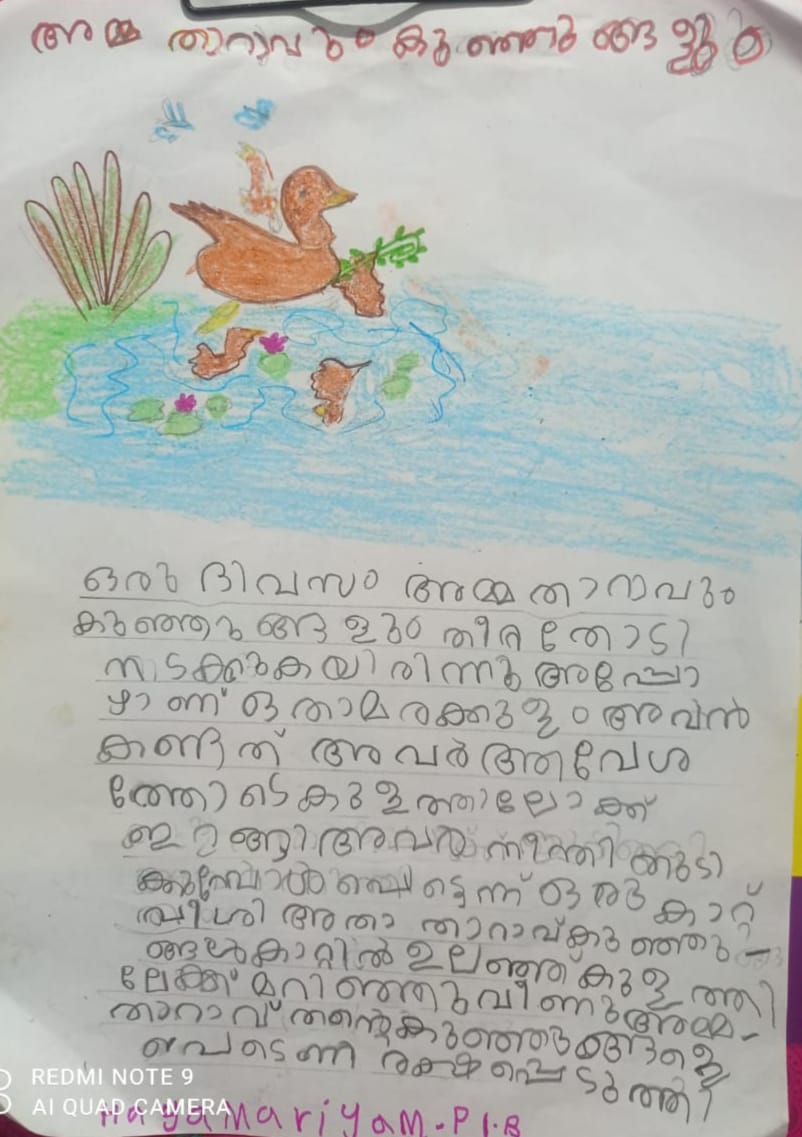 അമ്മ താറാവും കുഞ്ഞുങ്ങളും
ഒരു ദിവസം അമ്മ താറാവും
കുഞ്ഞുങ്ങളും തീര തോടി
നടക്കുകയിരിന്നു അപ്പോ
ഴാണ് ഒ താമരക്കുളം അവൻ
കണ്ടത് അവർ ആവേശ
ത്തോടെ കുളത്തിലോക്ക്
ഇറങ്ങി അവർ നീന്തി
പെട്ടെന്ന് ഒരു കാറ്റ്
വീശി അതാ താറാവ് കുഞ്ഞു
ങ്ങൾ കാറ്റിൽ ഉലഞ്ഞ് കുളത്തി
ലേക്ക് മറിഞ്ഞു വീണു അമ്മ
താറാവ് തന്റെ കുഞ്ഞുങ്ങളെ
പെടെന്ന് രക്ഷപ്പെടുത്തി
REDMI NOTE 9
AI QUAD CAMERA
Haya Mariyam.P 1.B